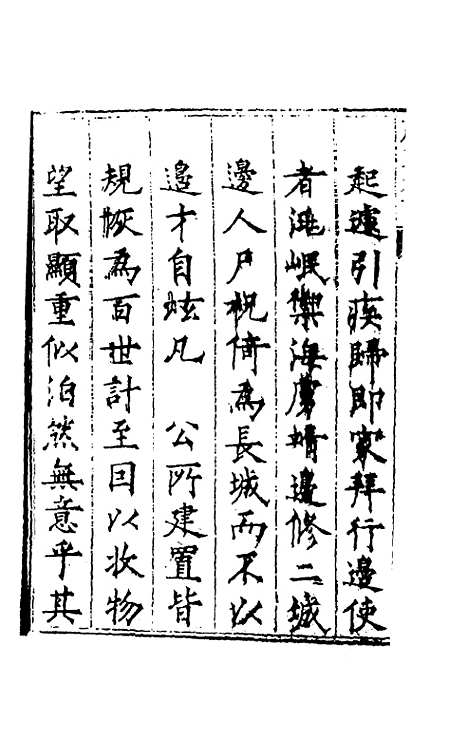 起遽引疾歸即家拜行邊使
者洮岷禦海虜增邊修二城
邊人戶祝倚為長城而不以
邊才自炫凡　公所建置皆
規恢為百世計至因以收物
望取顯重似泊然無意乎其